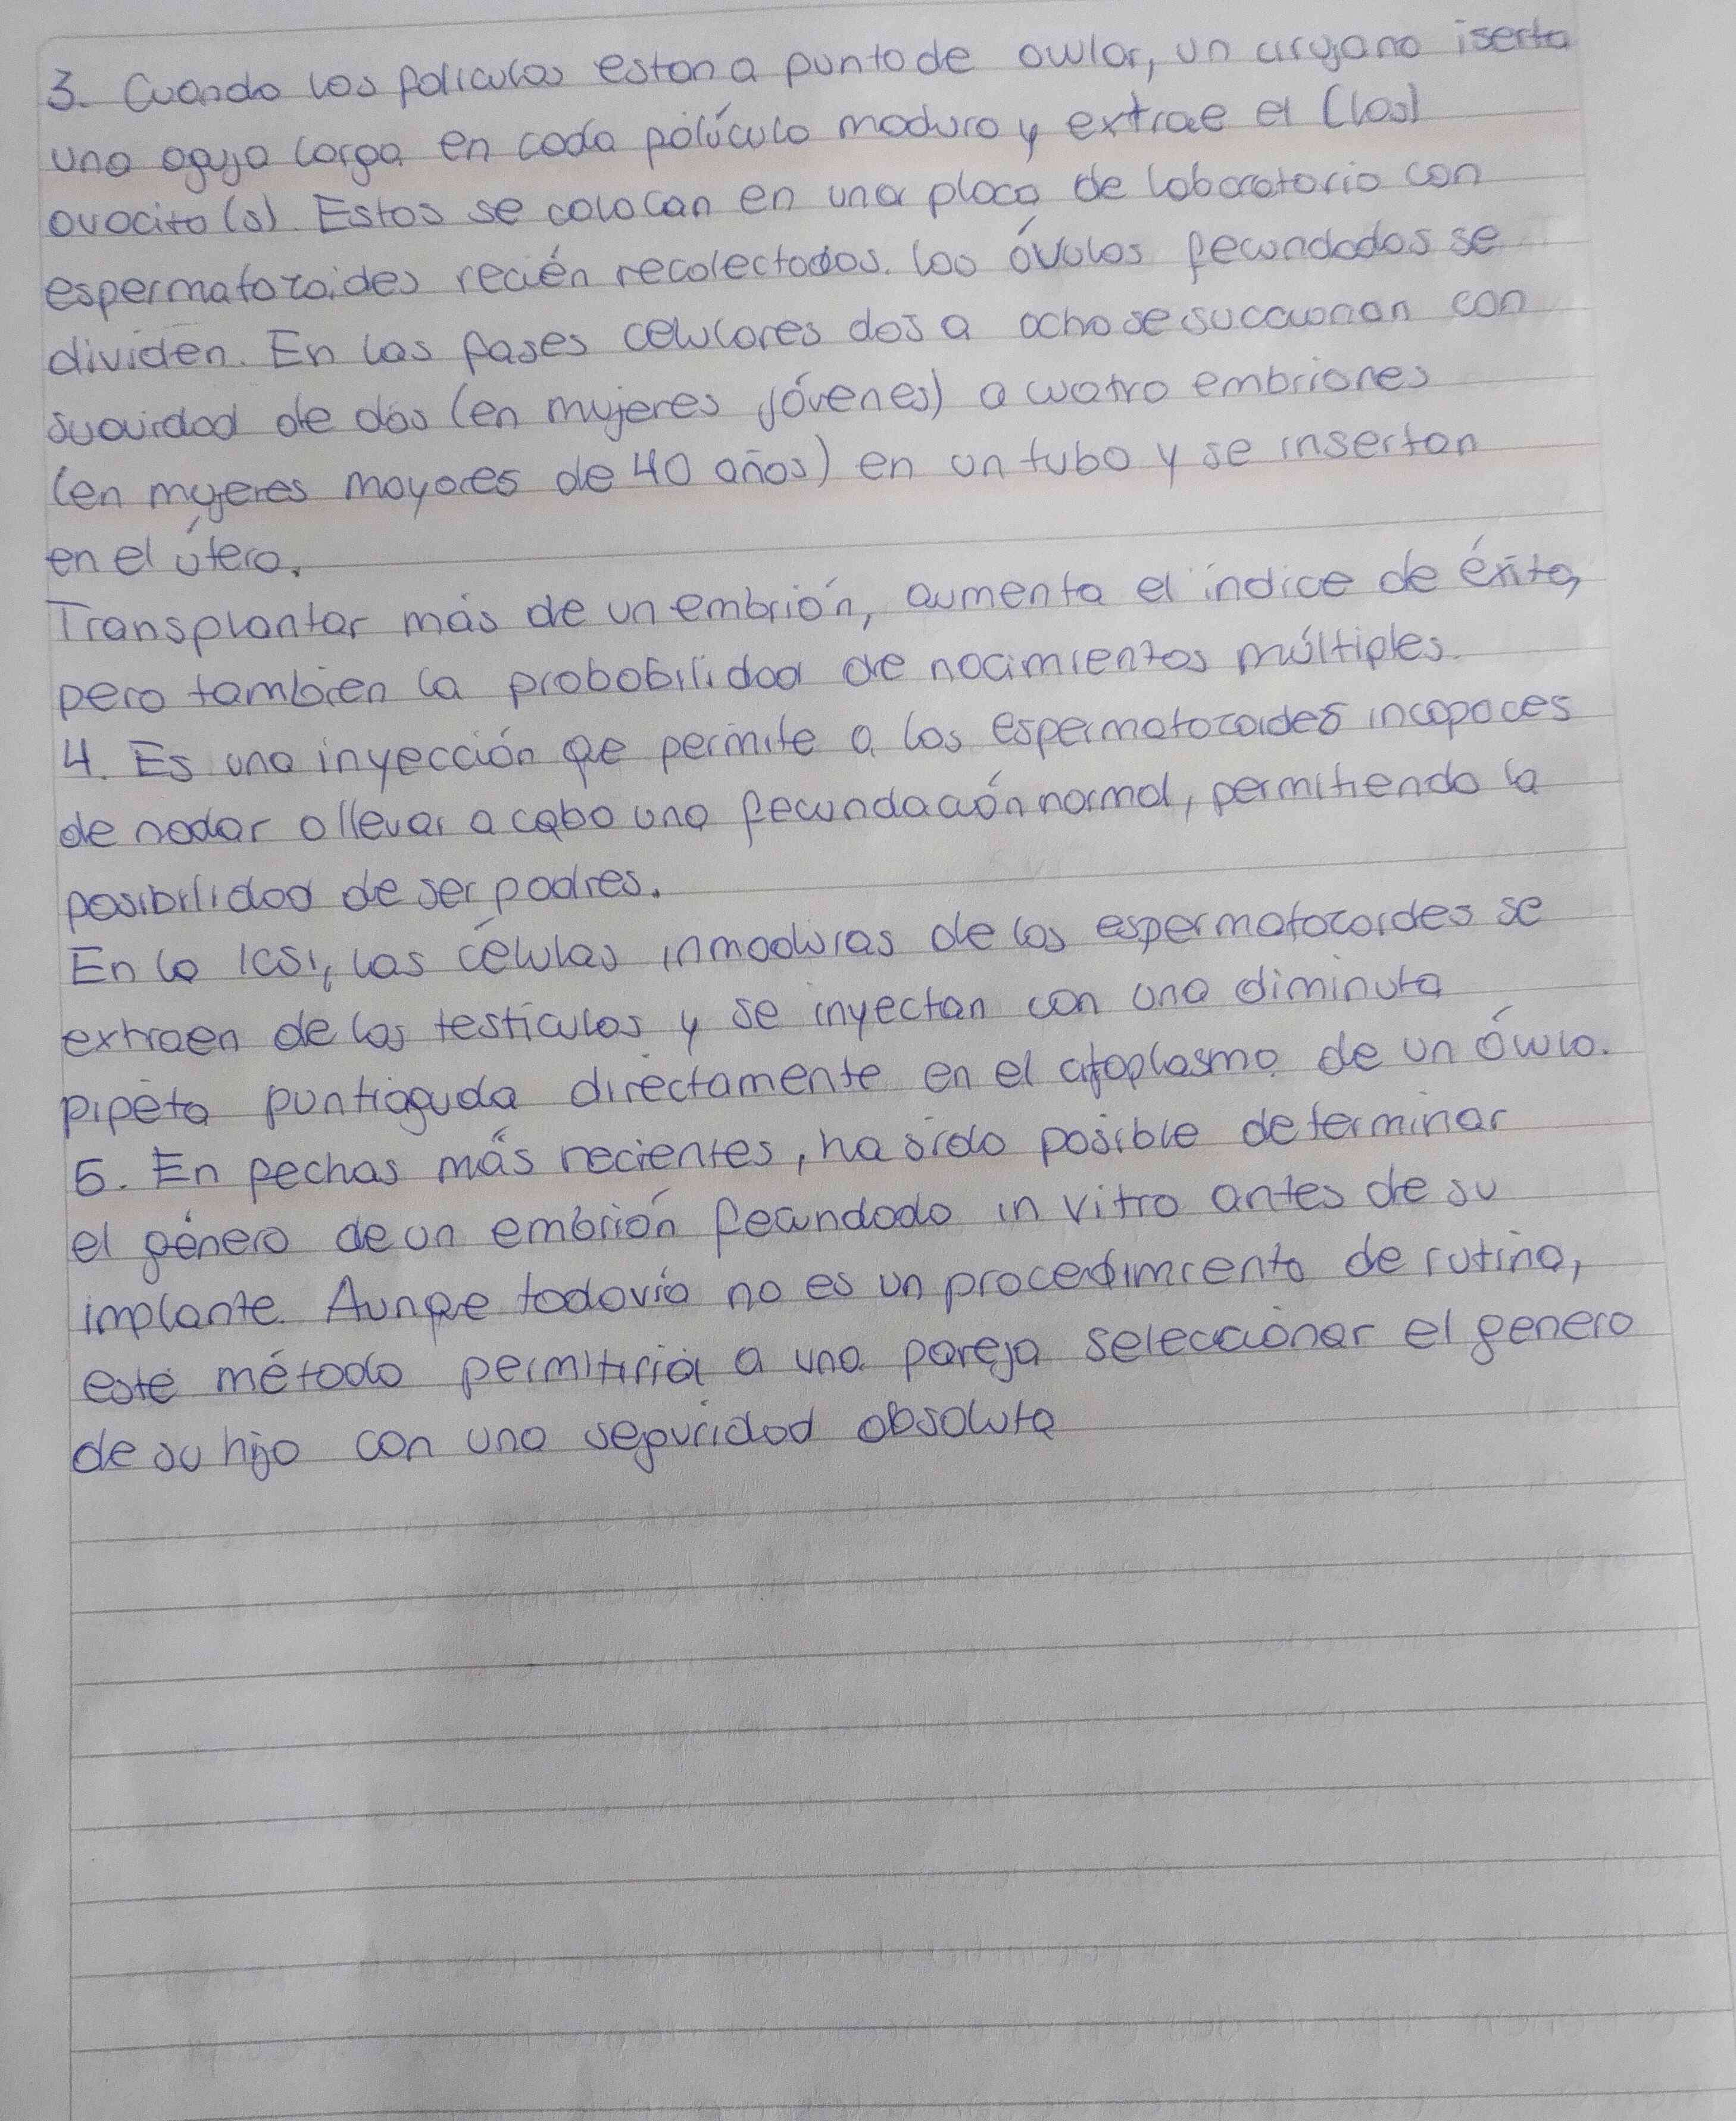 3. Cuando los foliculos estan a punto de ovular, un cirujano iserta
una aguja larga en cada folículo maduro y extrae el (los)
ovocito (s). Estos se colocan en una placa de laboratorio con
espermatozoides recién recolectados. Los óvulos fecundados se
dividen. En las fases celulares dos a ocho se succionan con
suavidad de dos (en mujeres jóvenes) a cuatro embriones
(en mujeres mayores de 40 años) en un tubo y se insertan
en el útero.
Transplantar más de un embrión, aumenta el índice de éxito,
pero tambien la probabilidad de nacimientos múltiples.
4. Es una inyección qe permite a los espermatozoides incapaces
de nadar o llevar a cabo una fecundación normal, permitiendo la
posibilidad de ser padres.
En la ICSI, las células inmaduras de los espermatozoides se
extraen de los testiculos y se inyectan con una diminuta
pipeta puntiaguda directamente en el citoplasma de un óvulo.
5. En fechas más recientes, ha sido posible determinar
el género de un embrión fecundado in vitro antes de su
implante. Aunqe todavía no es un procedimiento de rutina,
este método permitiría a una pareja seleccionar el genero
de su hijo con una seguridad absoluta